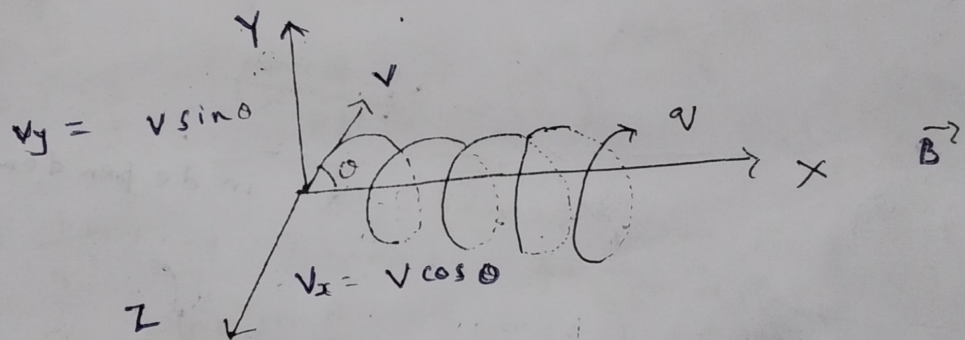 Y
V
vy = v sinθ
θ
q
X
B→
Vx = V cos θ
Z